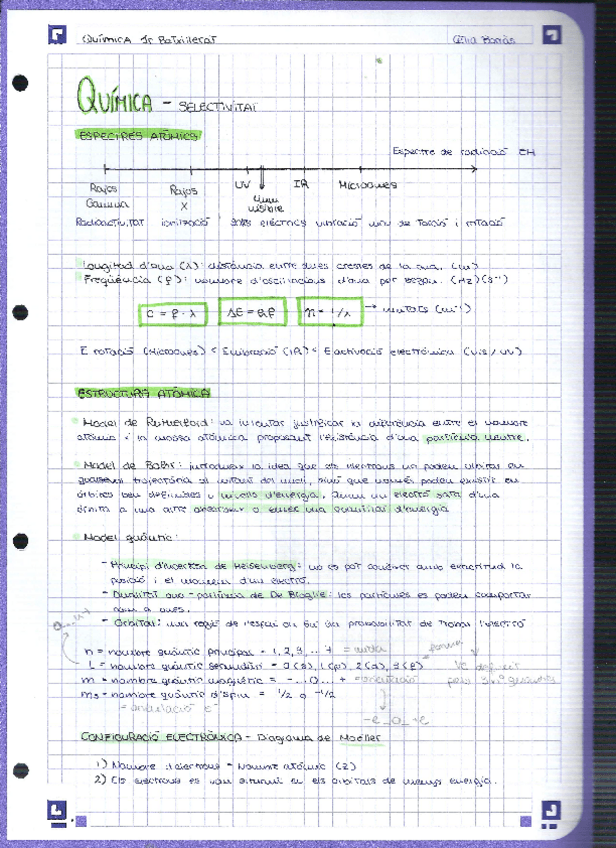 Química 2n Batxillerat
Júlia Borràs
QUÍMICA - SELECTIVITAT
ESPECTRES ATÒMICS
Espectre de radiació EM
Rajos Gamma
Rajos X
UV
Llum visible
IR
Microones
Radioactivitat ionització e⁻ elèctrics vibració i rotació
Longitud d'ona (λ): distància entre dues crestes de la ona. (m)
Freqüència (f): nombre d'oscil·lacions d'ona per segon. (Hz)(s⁻¹)
c = f · λ
ΔE = h·f
n = 1/λ
→ (m⁻¹)
E rotació (Microones) < E vibració (IR) < E activació electrònica (Vis / UV)
ESTRUCTURA ATÒMICA
Model de Rutherford: va intentar justificar la diferència entre el nombre
atòmic i la massa atòmica proposant l'existència d'una partícula neutre.
Model de Bohr: introdueix la idea que els electrons no poden orbitar en
trajectòria al voltant del nucli, sinó que només poden existir en
òrbites ben definides o nivells d'energia. Quan un electró salta d'una
òrbita a una altre absorbeix o emet una quantitat d'energia
Model quàntic:
- Principi d'incertesa de Heisenberg: no es pot conèixer amb exactitud la
posició i el moment d'un electró.
- Dualitat ona - partícula de De Broglie: les partícules es poden comportar
com a ones.
- Orbital: una regió de l'espai on hi ha probabilitat de trobar l'electró
n = nombre quàntic principal = 1, 2, 3, ... + = mida
L = nombre quàntic secundari = 0 (s), 1 (p), 2 (d), 3 (f)
forma
m = nombre quàntic magnètic = -...0...+ = orientació
ms = nombre quàntic d'espín = 1/2 o -1/2
e⁻
CONFIGURACIÓ ELECTRÒNICA - Diagrama de Moeller
1) Nombre d'electrons = Nombre atòmic (Z)
2) Els electrons es van situant en els orbitals de menys energia.